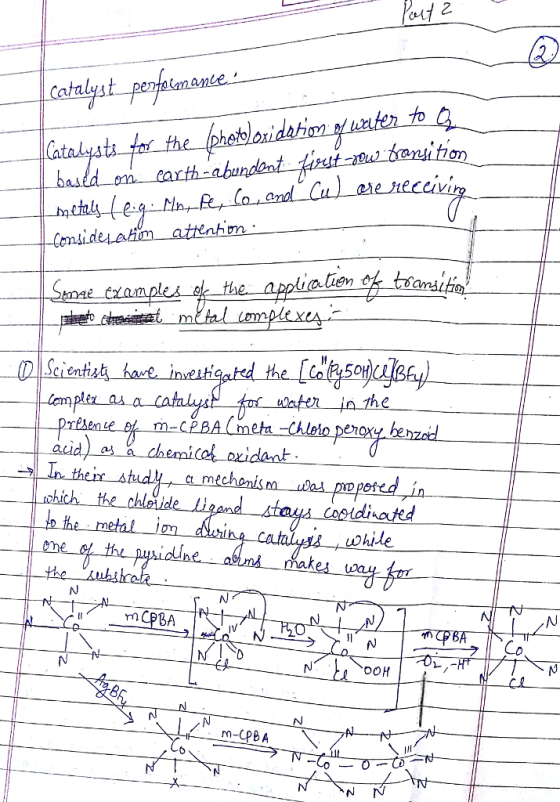 Part 2
2.
catalyst performance.
Catalysts for the (photo)oxidation of water to O2
based on earth-abundant first-row transition
metals (e.g. Mn, Fe, Co, and Cu) are receiving
consideration attention.
Some examples of the application of transition
metal complexes :-
① Scientists have investigated the [Co^II(Py5OH)Cl](BF4)
complex as a catalyst for water in the
presence of m-CPBA (meta-chloro peroxy benzoid
acid) as a chemical oxidant.
→ In their study, a mechanism was proposed, in
which the chloride ligand stays coordinated
to the metal ion during catalysis, while
one of the pyridine arms makes way for
the substrate.
N N N Co^II N N mCPBA N N N Co^IV N N O Cl H2O N N N Co^II N Cl OOH mCPBA -O2, -H+ N N N Co^II N N Cl
AgBF4
N N N Co^II N N X m-CPBA N N N Co^III N N - O - Co^III N N N N N